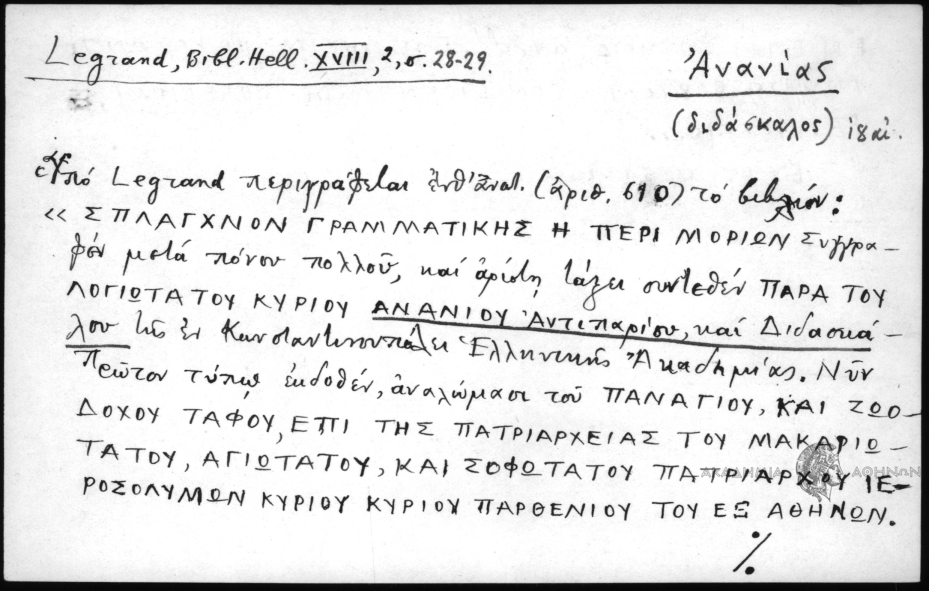 Legrand, Bibl. Hell. XVIII, 2, σ. 28-29.
Ἀνανίας
(διδάσκαλος) ιη αἰ.
Ὑπό Legrand περιγράφεται ἐνθ' ἀνωτ. (ἀριθ. 610) τό βιβλίον:
« ΣΠΛΑΓΧΝΟΝ ΓΡΑΜΜΑΤΙΚΗΣ Η ΠΕΡΙ ΜΟΡΙΩΝ Συγγρα-
φέν μετά πόνου πολλοῦ, καί ἀρίστῃ τάξει συντεθέν ΠΑΡΑ ΤΟΥ
ΛΟΓΙΩΤΑΤΟΥ ΚΥΡΙΟΥ ΑΝΑΝΙΟΥ Ἀντιπαρίου, καί Διδασκά-
λου τῆς ἐν Κωνσταντινουπόλει Ἑλληνικῆς Ἀκαδημίας. Νῦν
Πρῶτον τύπῳ ἐκδοθέν, ἀναλώμασι τοῦ ΠΑΝΑΓΙΟΥ, ΚΑΙ ΖΩΟ-
ΔΟΧΟΥ ΤΑΦΟΥ, ΕΠΙ ΤΗΣ ΠΑΤΡΙΑΡΧΕΙΑΣ ΤΟΥ ΜΑΚΑΡΙΩ-
ΤΑΤΟΥ, ΑΓΙΩΤΑΤΟΥ, ΚΑΙ ΣΟΦΩΤΑΤΟΥ ΠΑΤΡΙΑΡΧΟΥ ΙΕ-
ΡΟΣΟΛΥΜΩΝ ΚΥΡΙΟΥ ΚΥΡΙΟΥ ΠΑΡΘΕΝΙΟΥ ΤΟΥ ΕΞ ΑΘΗΝΩΝ.
./.
ΑΚΑΔΗΜΙΑ ΑΘΗΝΩΝ